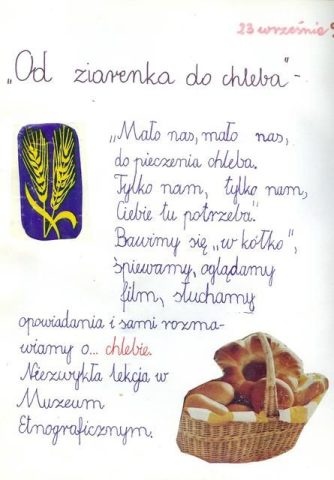 23 wrześnie
„Od ziarenka do chleba" -
„Mało nas, mało nas,
do pieczenia chleba.
Tylko nam, tylko nam,
Ciebie tu potrzeba".
Bawimy się „w kółko",
śpiewamy, oglądamy
film, słuchamy
opowiadania i sami rozma-
wiamy o... chlebie.
Niezwykła lekcja w
Muzeum
Etnograficznym.